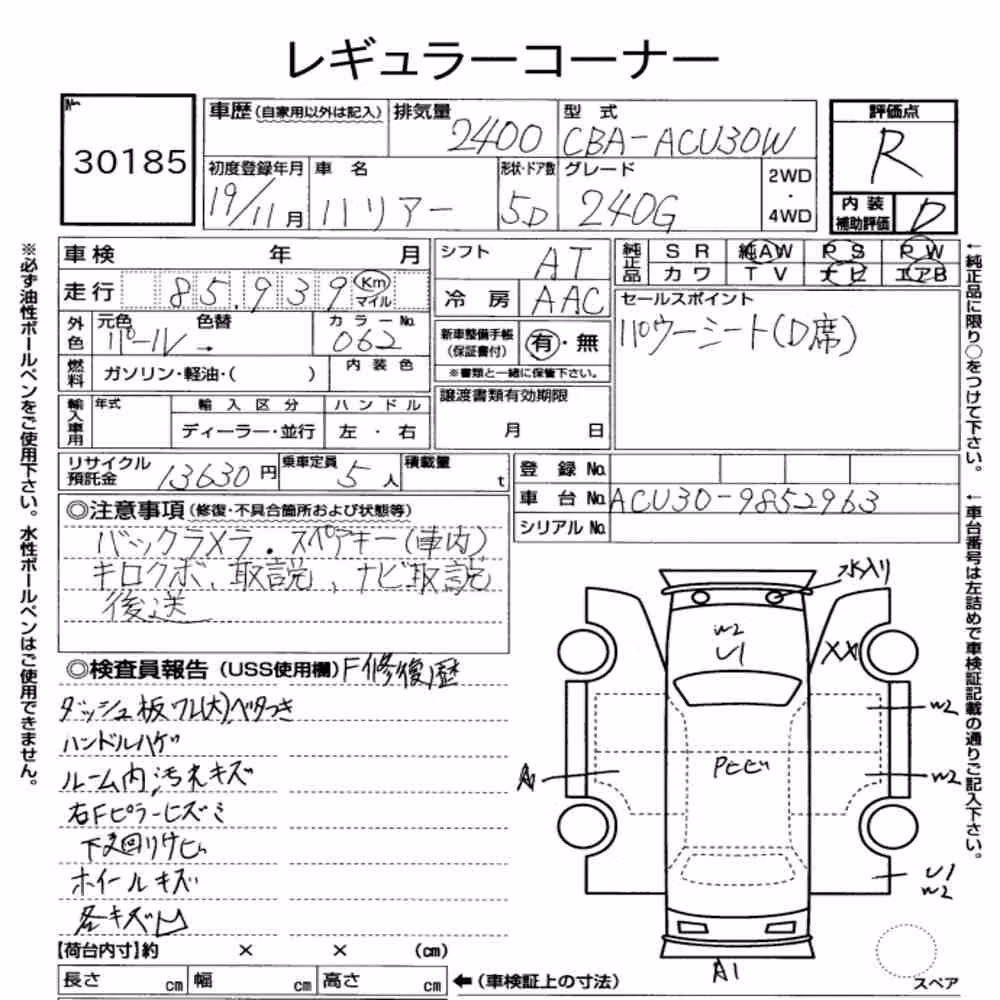 レギュラーコーナー
No. 30185
車歴(自家用以外は記入) 排気量 2400 型式 CBA-ACU30W
評価点 R
初度登録年月 19/11月 車名 ハリアー 形状・ドア数 5D グレード 240G 2WD・4WD
内装補助評価 D
車検 年 月
走行 85,939 Km マイル
シフト AT
冷房 AAC
純正品 SR 純AW PS PW
カワ TV ナビ エアB
外色 元色 パール 色替 → カラーNo. 062
燃料 ガソリン・軽油・( ) 内装色
新車整備手帳(保証書付) 有・無
※書類と一緒に保管下さい。
セールスポイント
パワーシート(D席)
輸入車用 年式 輸入区分 ハンドル
ディーラー・並行 左・右
譲渡書類有効期限
月 日
リサイクル預託金 13630円 乗車定員 5人 積載量 t
登録No.
車台No. ACU30-9852963
シリアルNo.
◎注意事項(修復・不具合箇所および状態等)
バックカメラ.スペアキー(車内)
キロクボ、取説、ナビ取説
後送
◎検査員報告(USS使用欄) F修復歴
ダッシュ板ワレ(大)ベタつき
ハンドルハゲ
ルーム内汚れキズ
右Fピラーヒズミ
下廻りサビ
ホイールキズ
各キズ凹
水入り
W2
U1
XX
W2
Pとび
W2
A
U1
W2
A1
スペア
【荷台内寸】約 × × (cm)
長さ cm 幅 cm 高さ cm ←(車検証上の寸法)
※必ず油性ボールペンをご使用下さい。水性ボールペンはご使用できません。
←純正品に限り○をつけて下さい。
←車台番号は左詰めで車検証記載の通りご記入下さい。